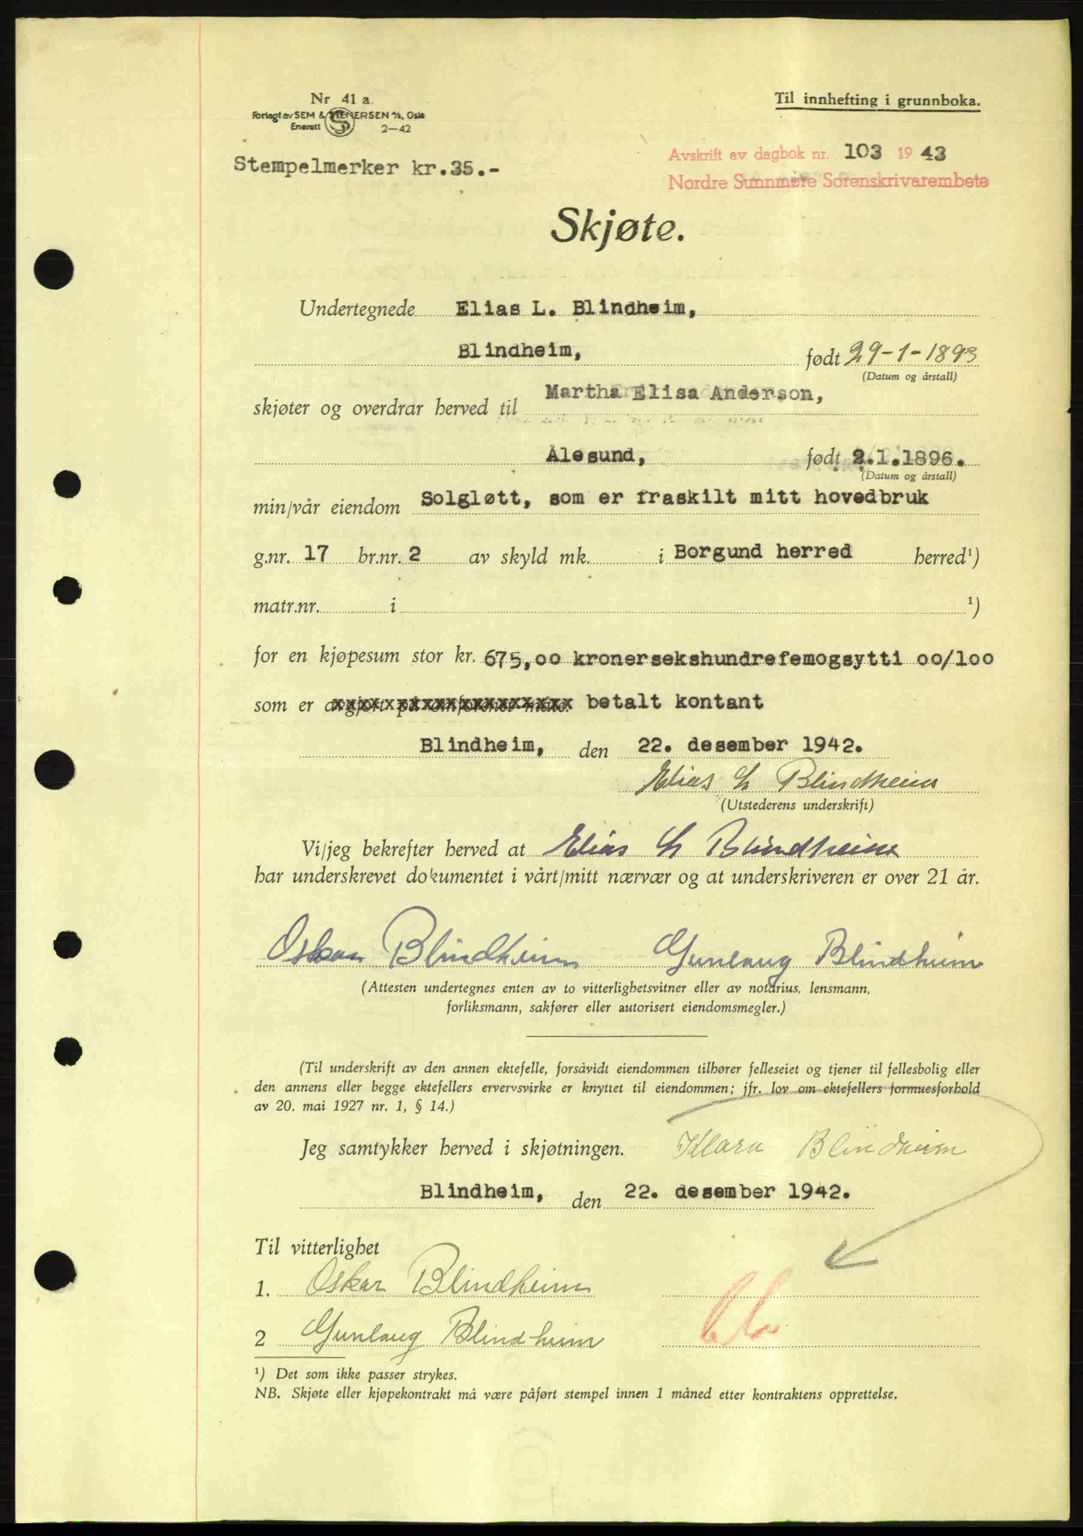 Nr 41 a.
Forlagt av SEM & STENERSEN A/S, Oslo
Enerett 2-42
Til innhefting i grunnboka.
Stempelmerker kr.35.-
Avskrift av dagbok nr. 103 1943
Nordre Sunnmøre Sorenskrivarembete
Skjøte.
Undertegnede Elias L. Blindheim,
Blindheim, født 29-1-1893
(Datum og årstall)
skjøter og overdrar herved til Martha Elisa Anderson,
Ålesund, født 2.1.1896.
(Datum og årstall)
min/vår eiendom Solgløtt, som er fraskilt mitt hovedbruk
g.nr. 17 br.nr. 2 av skyld mk. i Borgund herred herred¹)
matr.nr. i ¹)
for en kjøpesum stor kr. 675,00 kronersekshundrefemogsytti 00/100
som er avgjort på omforenet måte. betalt kontant
Blindheim, den 22. desember 1942.
Elias L Blindheim
(Utstederens underskrift)
Vi/jeg bekrefter herved at Elias L Blindheim
har underskrevet dokumentet i vårt/mitt nærvær og at underskriveren er over 21 år.
Oskar Blindheim Gunlaug Blindheim
(Attesten undertegnes enten av to vitterlighetsvitner eller av notarius, lensmann,
forliksmann, sakfører eller autorisert eiendomsmegler.)
(Til underskrift av den annen ektefelle, forsåvidt eiendommen tilhører felleseiet og tjener til fellesbolig eller
den annens eller begge ektefellers ervervsvirke er knyttet til eiendommen; jfr. lov om ektefellers formuesforhold
av 20. mai 1927 nr. 1, § 14.)
Jeg samtykker herved i skjøtningen. Klara Blindheim
Blindheim, den 22. desember 1942.
Til vitterlighet
1. Oskar Blindheim
2 Gunlaug Blindheim
¹) Det som ikke passer strykes.
NB. Skjøte eller kjøpekontrakt må være påført stempel innen 1 måned etter kontraktens opprettelse.